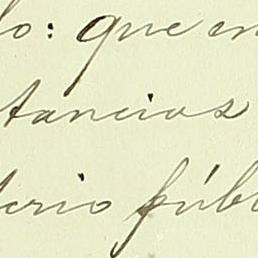 lo: que en
tancias
terio públ